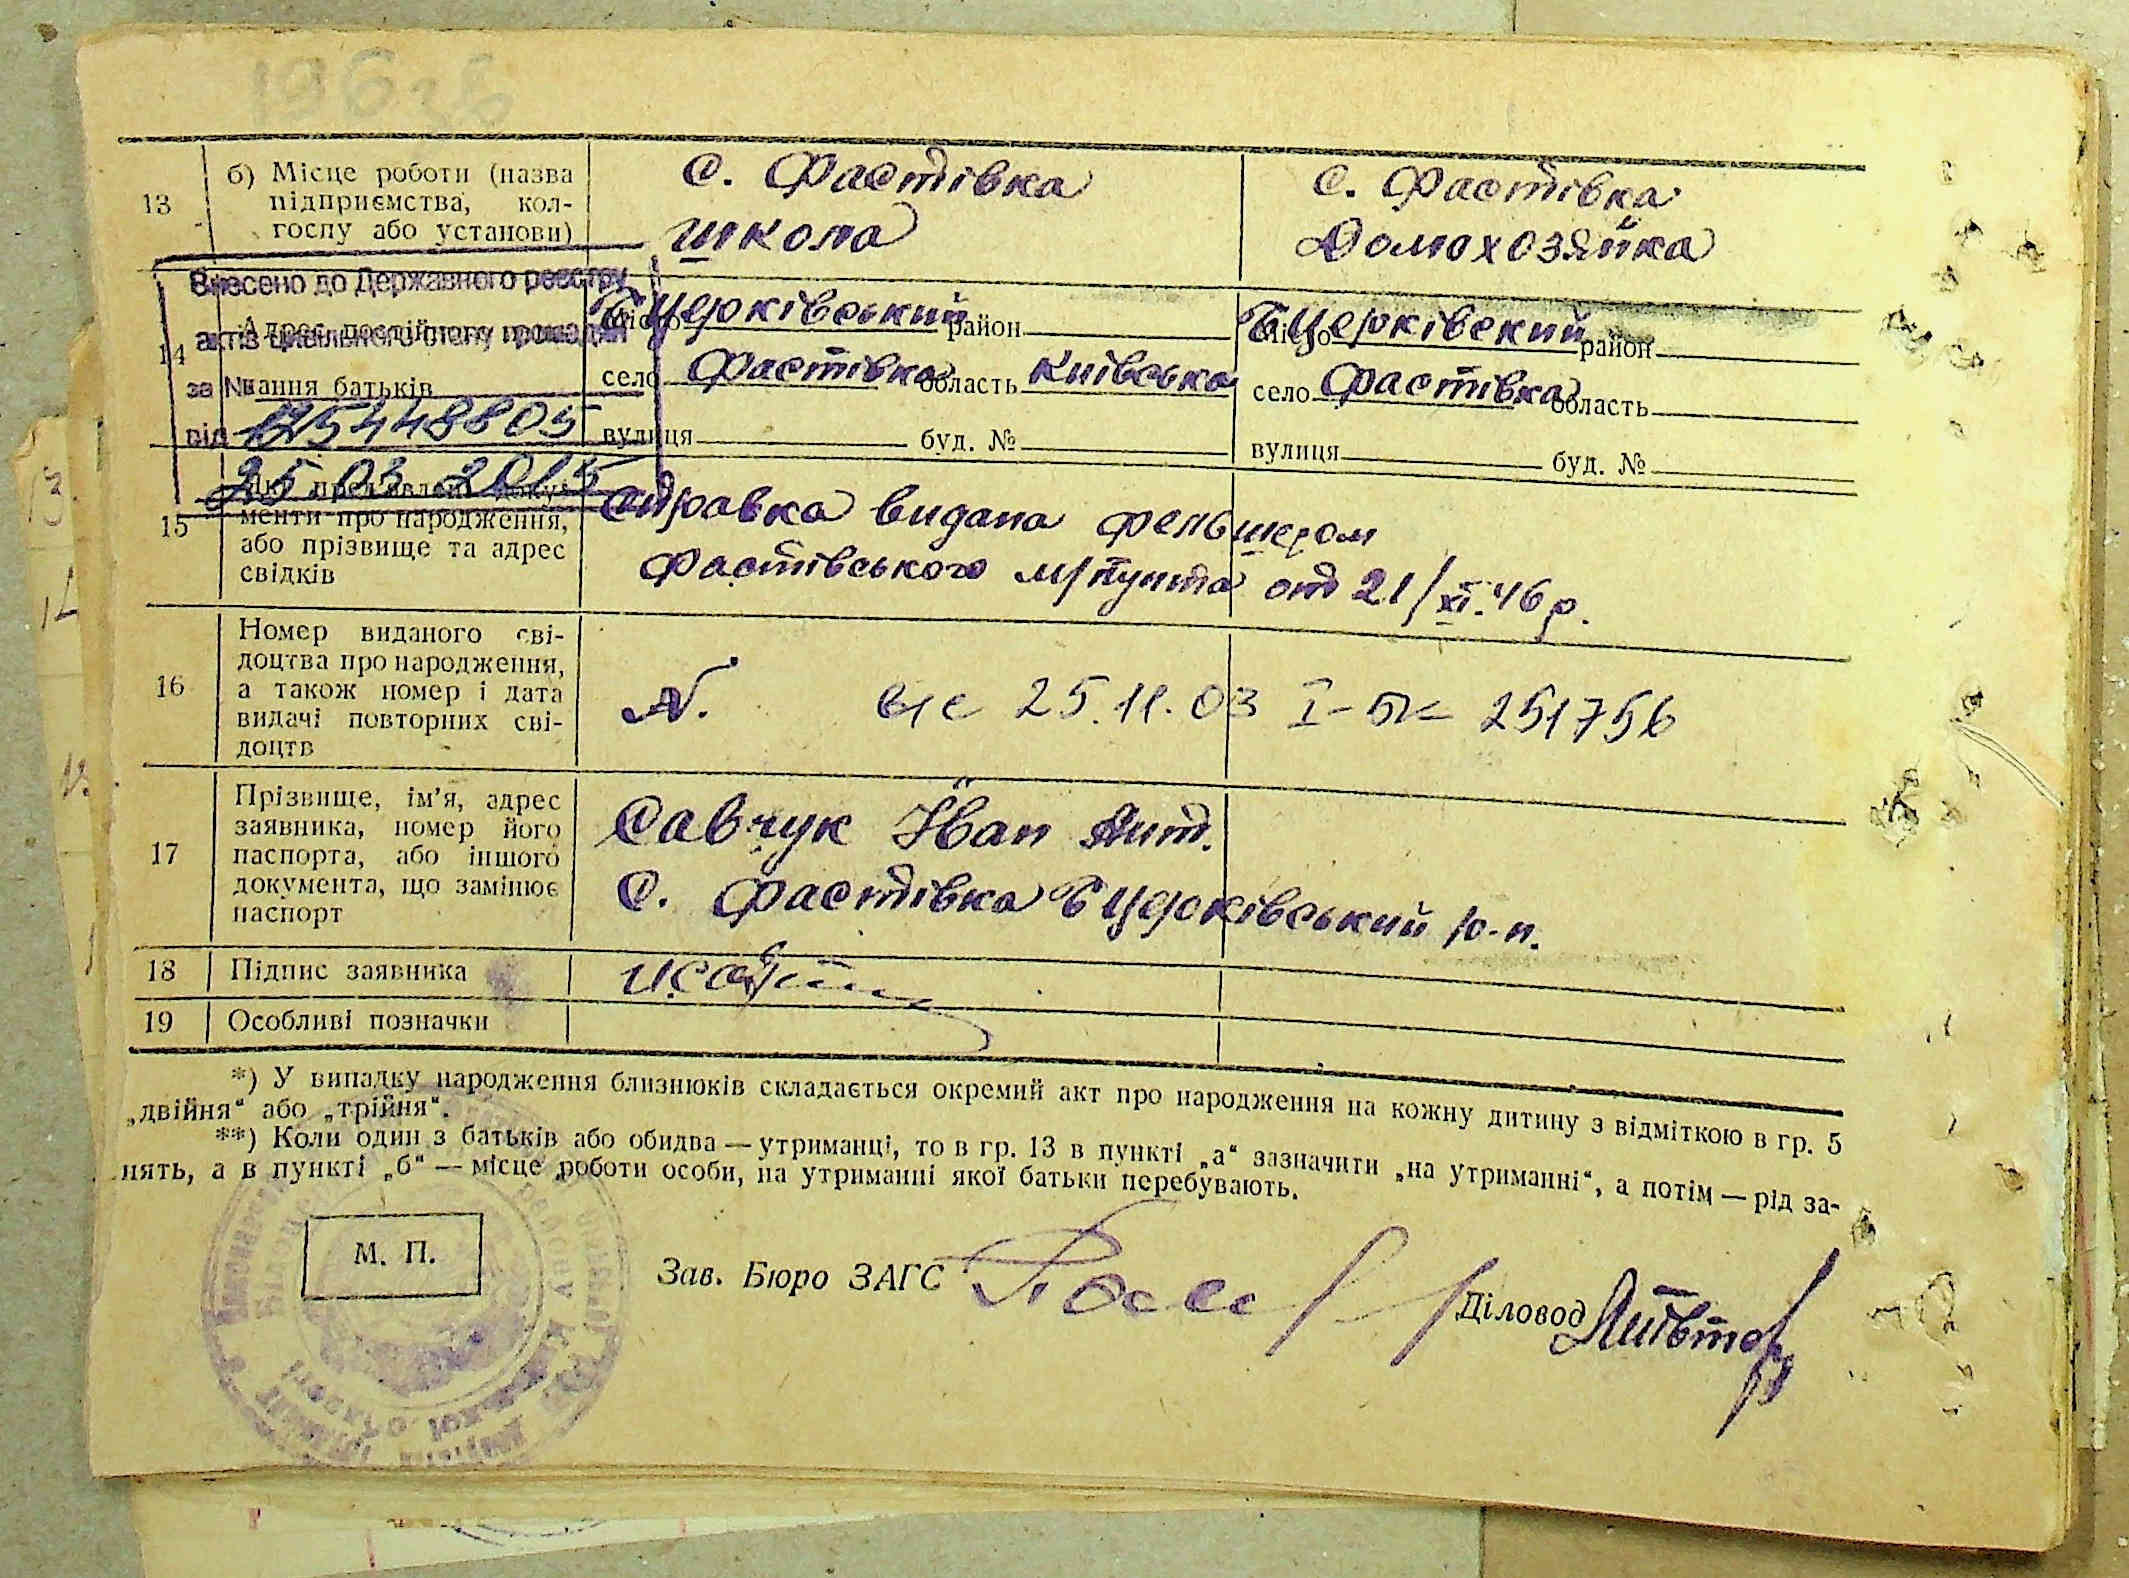 13
б) Місце роботи (назва
підприємства, кол-
госпу або установи)
с. Фастівка
школа
с. Фастівка
Домохозяйка
Внесено до Державного реєстру
актів цивільного стану громадян
за №
125448805
від
25 03 2015
14
Адрес постійного
вання батьків
місто Б Церківський район
село Фастівка область Київська
вулиця буд. №
місто Б Церківский район
село Фастівка область
вулиця буд. №
15
Які пред'явлені доку-
менти про народження,
або прізвище та адрес
свідків
Справка видана фельшером
Фастівського м/пункта от 21/XI.46 р.
16
Номер виданого сві-
доцтва про народження,
а також номер і дата
видачі повторних сві-
доцтв
N. 25.11.03 I-БК 251756
17
Прізвище, ім'я, адрес
заявника, номер його
паспорта, або іншого
документа, що замінює
паспорт
Савчук Іван Ант.
С. Фастівка Б Церківський р-н.
18
Підпис заявника
19
Особливі позначки
*) У випадку народження близнюків складається окремий акт про народження на кожну дитину з відміткою в гр. 5
„двійня“ або „трійня“.
**) Коли один з батьків або обидва — утриманці, то в гр. 13 в пункті „а“ зазначити „на утриманні“, а потім — рід за-
нять, а в пункті „б“ — місце роботи особи, на утриманні якої батьки перебувають.
М. П.
Зав. Бюро ЗАГС
Діловод